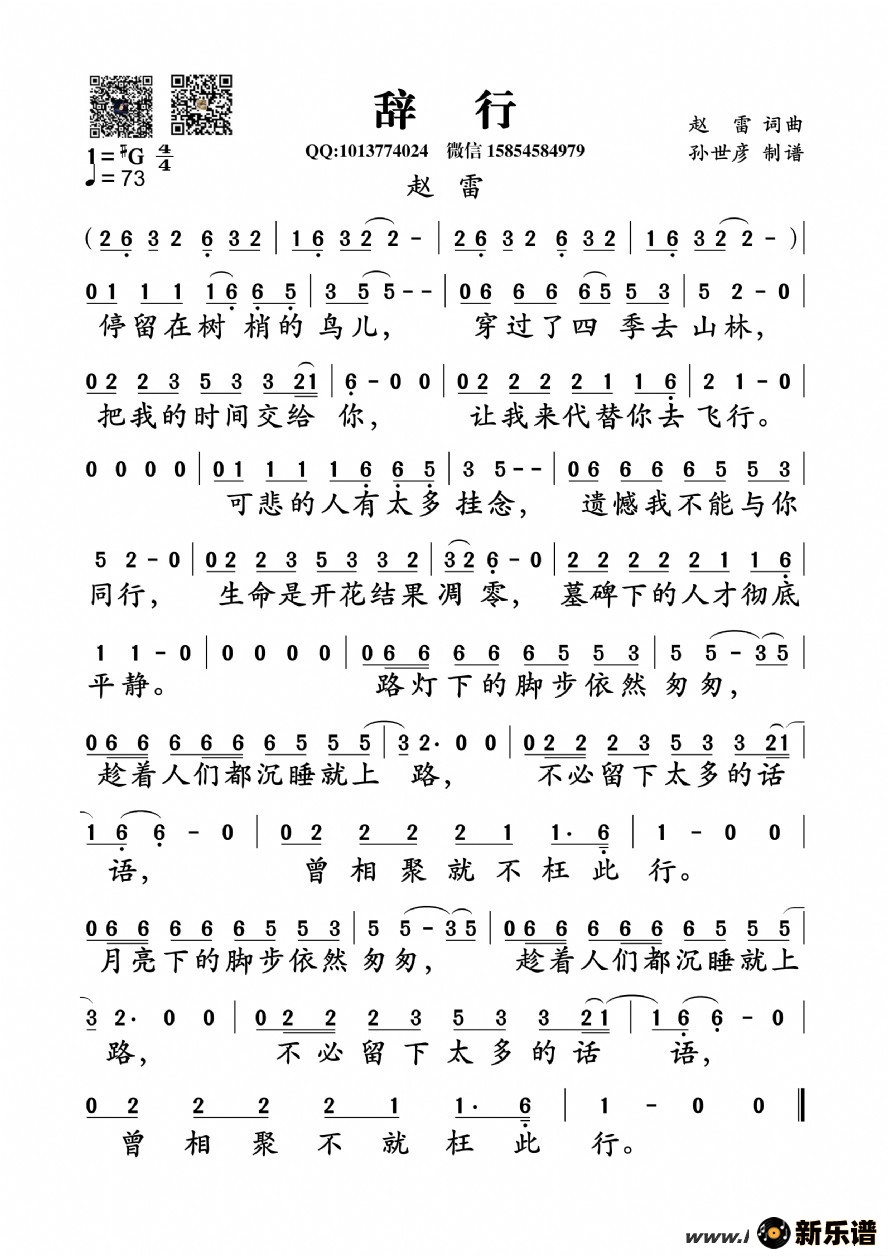 辞 行
赵 雷 词曲
QQ:1013774024 微信 15854584979
孙世彦 制谱
1=♯G 4/4
♩=73
赵 雷
(2 6 3 2 6 3 2 | 1 6 3 2 2 - | 2 6 3 2 6 3 2 | 1 6 3 2 2 - )|
0 1 1 1 1 6 6 5 | 3 5 5 - - | 0 6 6 6 6 5 5 3 | 5 2 - 0 |
停留在树 梢的 鸟儿, 穿过了四 季去 山林,
0 2 2 3 5 3 3 2 1 | 6 - 0 0 | 0 2 2 2 2 1 1 6 | 2 1 - 0 |
把我的时间交给 你, 让我来代替你去飞行。
0 0 0 0 | 0 1 1 1 1 6 6 5 | 3 5 - - | 0 6 6 6 6 5 5 3 |
可悲的人有太多 挂念, 遗憾我不能与你
5 2 - 0 | 0 2 2 3 5 3 3 2 | 3 2 6 - 0 | 2 2 2 2 2 1 1 6 |
同行, 生命是开花结果凋 零, 墓碑下的人才彻底
1 1 - 0 | 0 0 0 0 | 0 6 6 6 6 6 5 5 3 | 5 5 - 3 5 |
平静。 路灯下的脚步依然 匆匆,
0 6 6 6 6 6 6 5 5 5 | 3 2· 0 0 | 0 2 2 2 3 5 3 3 2 1 |
趁着人们都沉睡就上 路, 不必留下太多的话
1 6 6 - 0 | 0 2 2 2 2 1 1· 6 | 1 - 0 0 |
语, 曾相聚就不枉此 行。
0 6 6 6 6 6 5 5 3 | 5 5 - 3 5 | 0 6 6 6 6 6 6 5 5 5 |
月亮下的脚步依然 匆匆, 趁着人们都沉睡就上
3 2· 0 0 | 0 2 2 2 3 5 3 3 2 1 | 1 6 6 - 0 |
路, 不必留下太多的话 语,
0 2 2 2 2 1 1· 6 | 1 - 0 0 ‖
曾相聚不就枉此 行。
www.
新乐谱